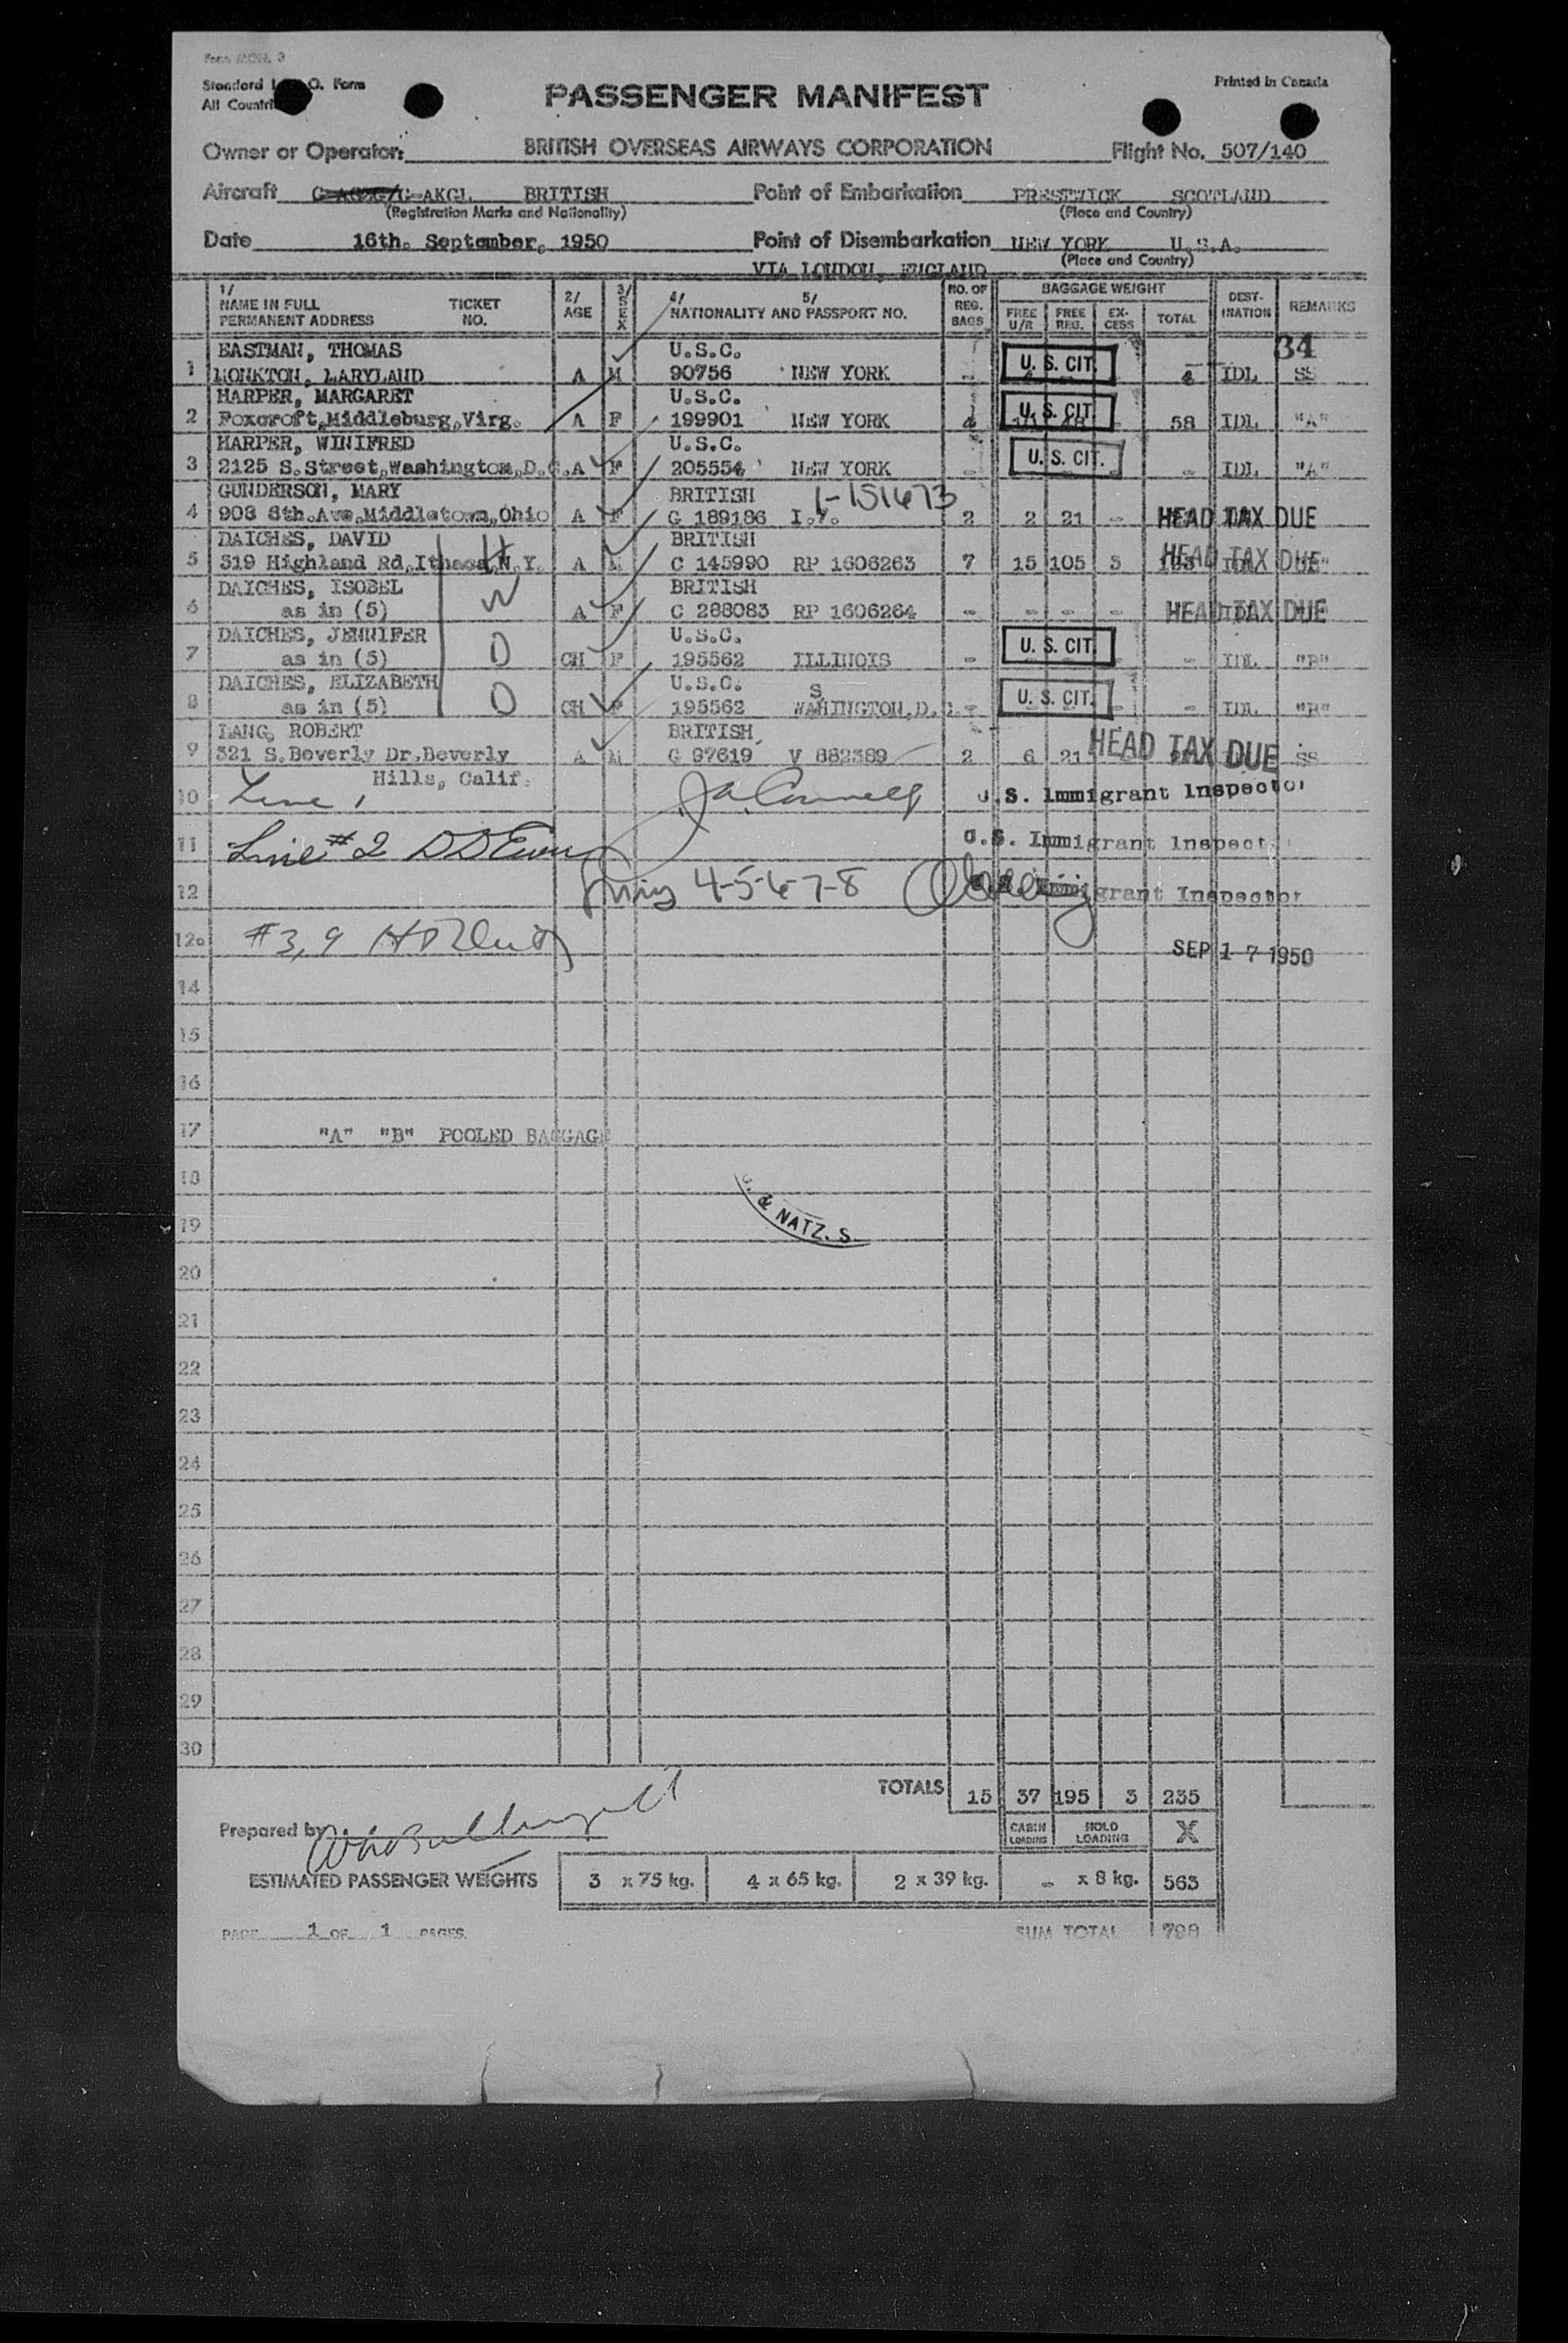 Form MON. 3
Standard I. O. Form
All Countri
PASSENGER MANIFEST
Printed in Canada
Owner or Operator: BRITISH OVERSEAS AIRWAYS CORPORATION Flight No. 507/140
Aircraft G-AKGL BRITISH Point of Embarkation PRESTWICK SCOTLAND
(Registration Marks and Nationality) (Place and Country)
Date 16th. September, 1950 Point of Disembarkation NEW YORK U.S.A.
(Place and Country)
VIA LONDON, ENGLAND
1/ NAME IN FULL PERMANENT ADDRESS TICKET NO. 2/ AGE 3/ SEX 4/ 5/ NATIONALITY AND PASSPORT NO. NO. OF REG. BAGS BAGGAGE WEIGHT FREE U/R FREE REG. EX-CESS TOTAL DEST-INATION REMARKS
34
EASTMAN, THOMAS U.S.C.
1 MONKTON, MARYLAND A M 90756 NEW YORK - U. S. CIT. 4 IDL SS
HARPER, MARGARET U.S.C.
2 Foxcroft,Middleburg,Virg. A F 199901 NEW YORK 4 U. S. CIT. - 58 IDL "A"
HARPER, WINIFRED U.S.C.
3 2125 S.Street,Washington,D.C.A F 205554 NEW YORK - U. S. CIT. - IDL "A"
GUNDERSON, MARY BRITISH 1-151673
4 903 8th.Ave.Middletown,Ohio A F G 189186 I.V. 2 2 21 - HEAD TAX DUE
DAICHES, DAVID BRITISH
5 319 Highland Rd,Ithaca,N.Y. H A M C 145990 RP 1606263 7 15 105 3 123 HEAD TAX DUE
DAICHES, ISOBEL BRITISH
6 as in (5) W A F C 288083 RP 1606264 - - - - HEAD TAX DUE
DAICHES, JENNIFER U.S.C.
7 as in (5) D CH F 195562 ILLINOIS - U. S. CIT. - - IDL "B"
DAICHES, ELIZABETH U.S.C. S
8 as in (5) D CH F 195562 WAHINGTON,D.C. - U. S. CIT. - - IDL "B"
LANG, ROBERT BRITISH
9 321 S.Beverly Dr.Beverly A M G 97619 V 882389 2 6 21 HEAD TAX DUE SS
Hills, Calif.
10 Line 1 U.S. Immigrant Inspector
11 Line #2 U.S. Immigrant Inspect
12 4-5-6-7-8 Immigrant Inspector
12a #3, 9 SEP 1 7 1950
14
15
16
17 "A" "B" POOLED BAGGAGE
18
19 & NATZ. S.
20
21
22
23
24
25
26
27
28
29
30
TOTALS 15 37 195 3 235
Prepared by CABIN LOADING HOLD LOADING X
ESTIMATED PASSENGER WEIGHTS 3 x 75 kg. 4 x 65 kg. 2 x 39 kg. - x 8 kg. 563
PAGE 1 OF 1 PAGES. SUM TOTAL 798